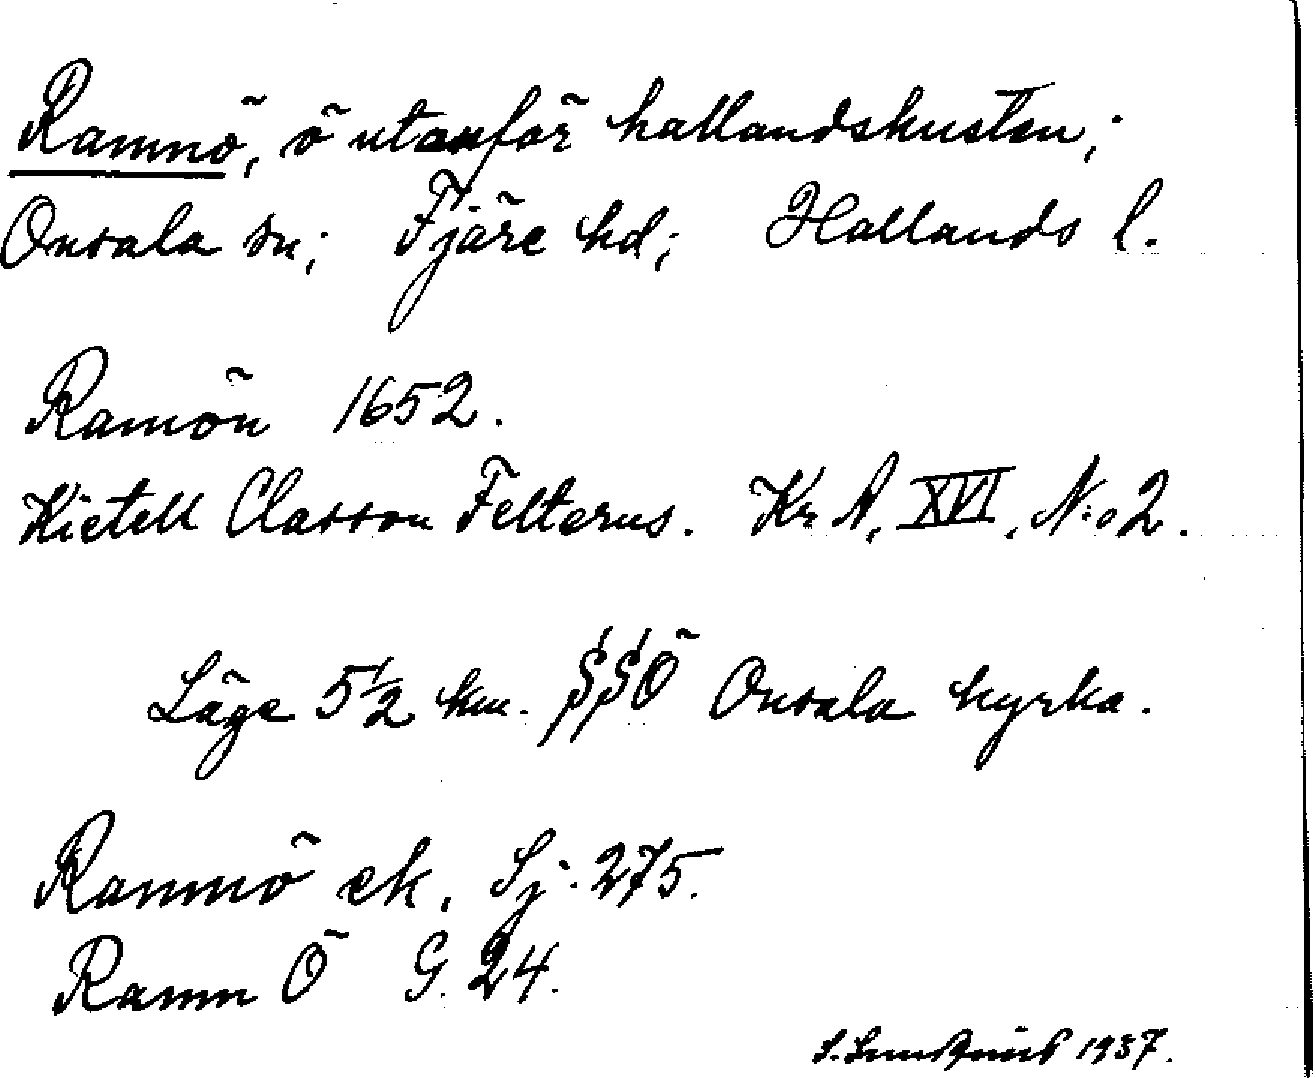 Ramnö, ö utanför hallandskusten;
Onsala sn; Fjäre hd; Hallands l.
Ramön 1652.
Kietell Classon Felterus. Kr A, XVI, N:o 2.
Läge 5½ km. SSÖ Onsala kyrka.
Rammö ek. Sj. 275.
Ramn Ö G. 24.
1937.